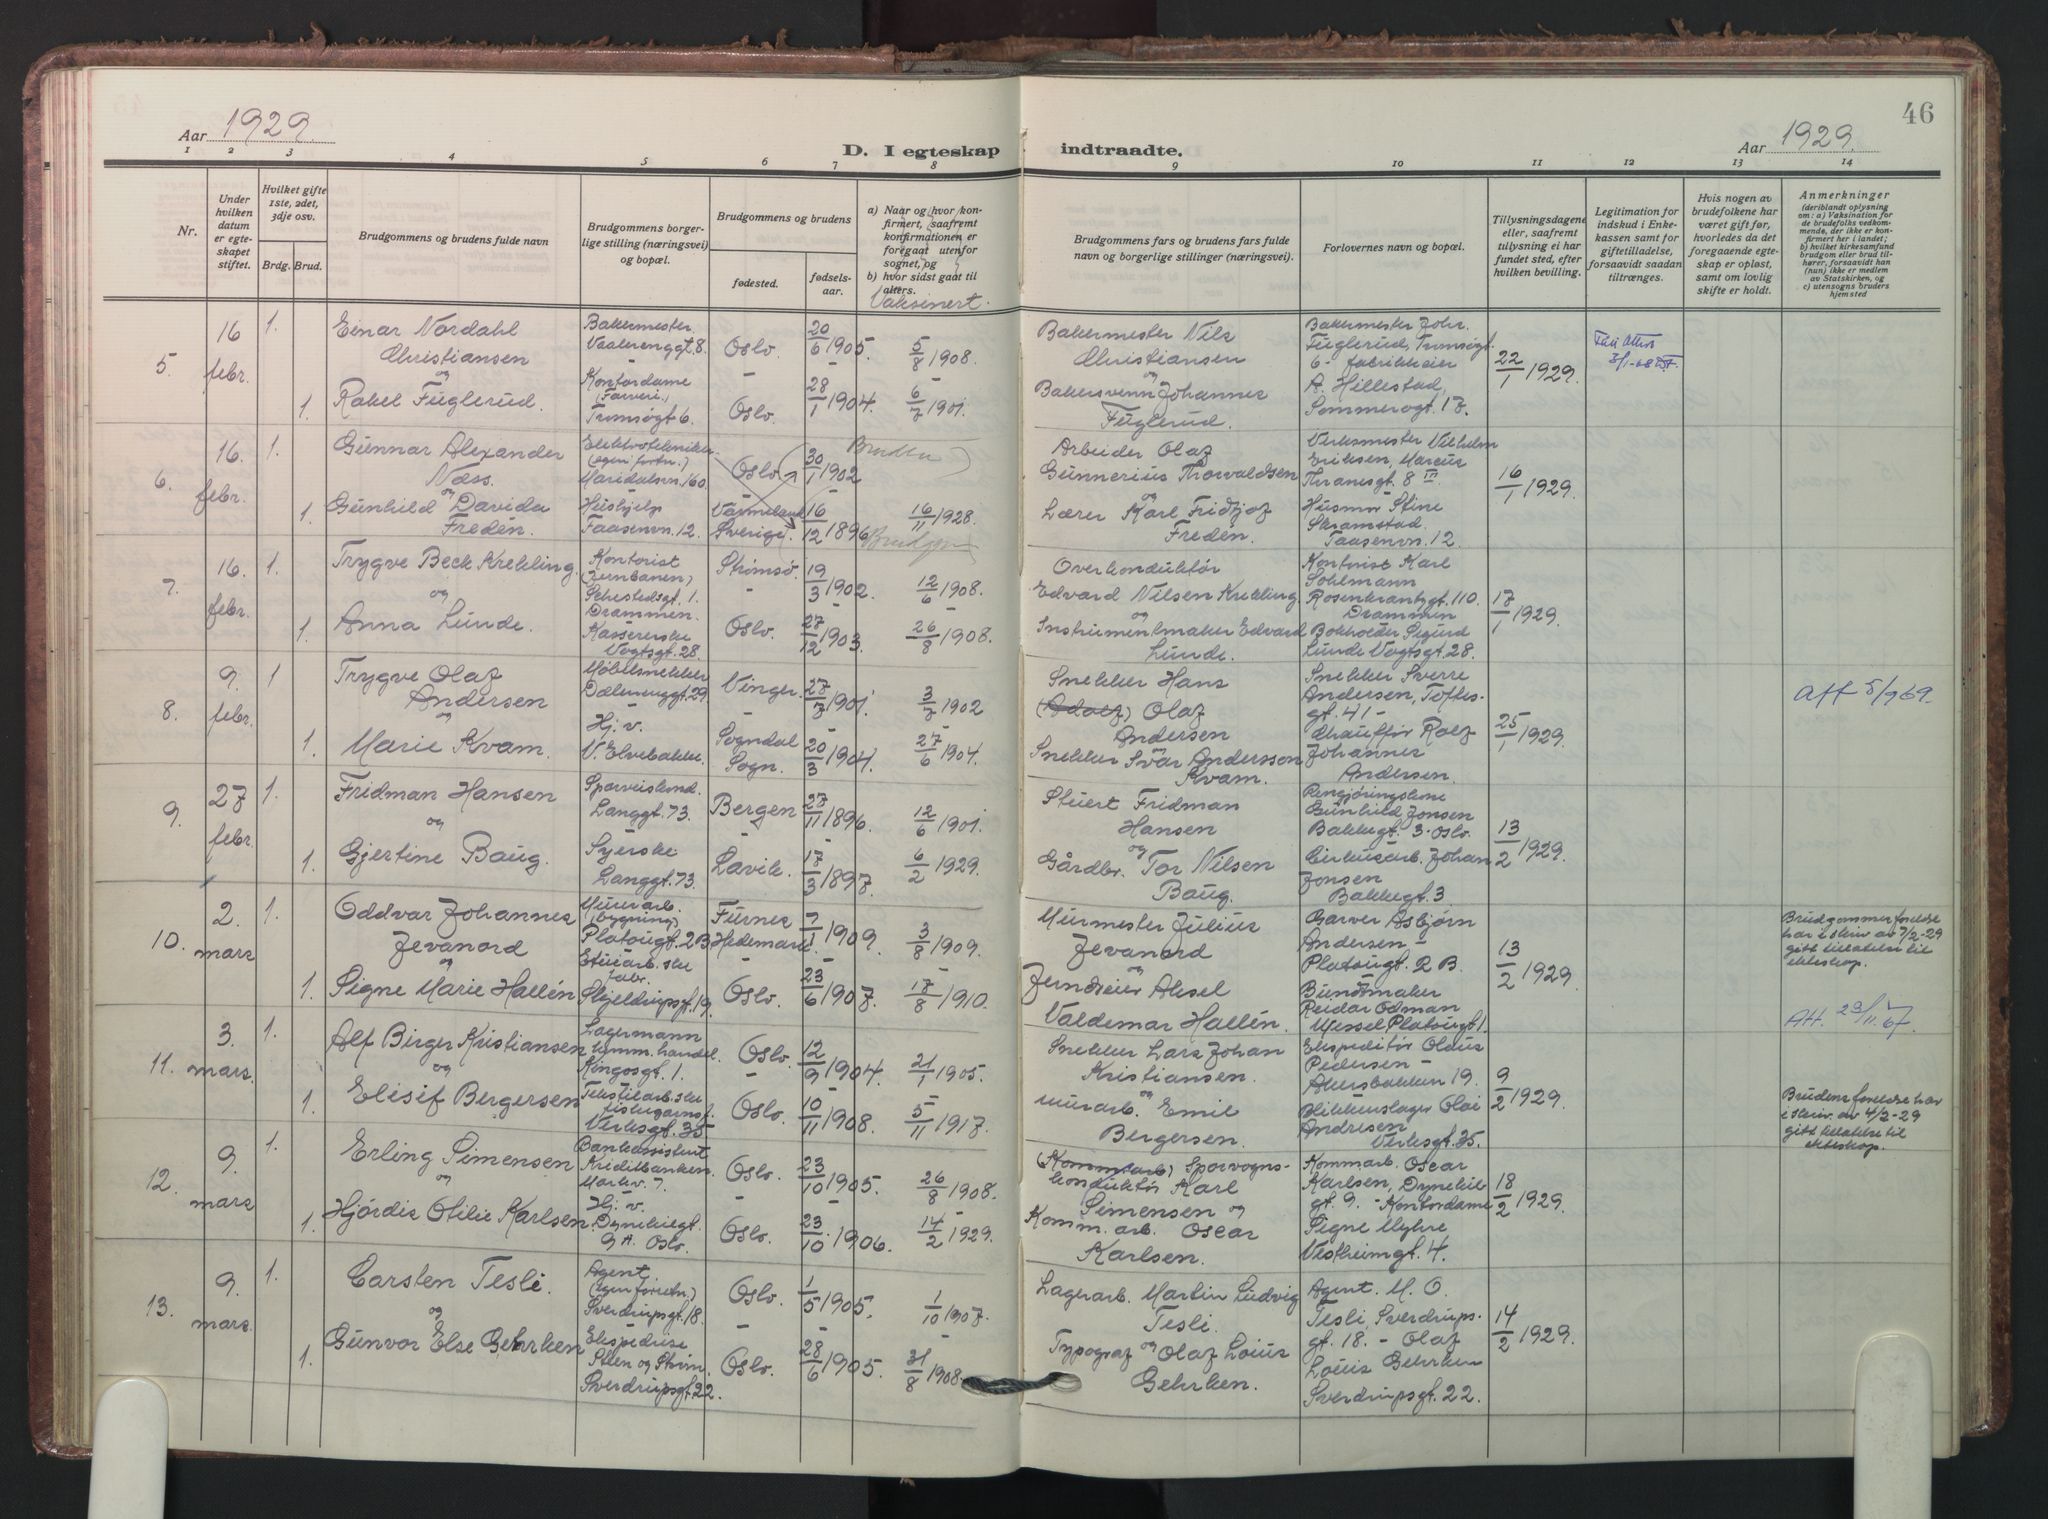 46
Aar 1929.
D. I egteskap indtraadte.
Aar 1929.
1 2 3 4 5 6 7 8 9 10 11 12 13 14
Nr.
Under hvilken datum er egteskapet stiftet.
Hvilket gifte 1ste, 2det, 3dje osv.
Brdg. Brud.
Brudgommens og brudens fulde navn
Brudgommens borgerlige stilling (næringsvei) og bopæl.
Brudgommens og brudens
fødested.
fødselsaar.
a) Naar og hvor konfirmert, saafremt konfirmationen er foregaat utenfor sognet, og
b) hvor sidst gaat til alters.
Vaksinert.
Brudgommens fars og brudens fars fulde navn og borgerlige stillinger (næringsvei).
Forlovernes navn og bopæl.
Tillysningsdagene eller, saafremt tillysning ei har fundet sted, efter hvilken bevilling.
Legitimation for indskud i Enkekassen samt for giftetilladelse, forsaavidt saadan tiltrænges.
Hvis nogen av brudefolkene har været gift før, hvorledes da det foregaaende egteskap er opløst, samt om lovlig skifte er holdt.
Anmerkninger
(deriblandt oplysning om: a) Vaksination for de brudefolks vedkommende, der ikke er konfirmert her i landet; b) hvilket kirkesamfund brudgom eller brud tilhører, forsaavidt han (hun) ikke er medlem av Statskirken, og c) utensogns bruders hjemsted
5.
16 febr.
1.
Einar Nordahl
Christiansen
og
1. Rakel Fuglerud.
Bakermester
Vaalerenggt. 8.
Kontordame
(Farveri.)
Tromsøgt. 6.
Oslo. 20/6 1905. 5/8 1908.
Oslo. 28/1 1904. 6/7 1901.
Bakermester Nils
Christiansen
og
Bakersvenn Johannes
Fuglerud.
Bakermester Johs.
Fuglerud, Tromsøgt.
6 - fabrikkeier
A. Hillestad,
Sommerogt. 17.
22/1 1929.
6.
16. febr.
1.
Gunnar Alexander
Næss.
og
1. Gunhild Davida
Fredén.
Elektrotekniker
(egen forretn.)
Maridalsvn. 160.
Hushjelp
Taasenvn. 12.
Oslo. 30/1 1902
Bruden
Värmeland
Sverige. 16/12 1896 16/11 1928.
Brudgom
Arbeider Olaf
Gunnerius Thorvaldsen
og
Lærer Karl Fridtjof
Fredén.
Verksmester Vilhelm
Eriksen, Marcus
Thranesgt. 8 III
Husmor Stine
Skramstad.
Taasenvn. 12.
16/1 1929.
7.
16. febr.
1.
Trygve Beck Krekling.
og
1. Anna Lunde.
Kontorist
(Jernbanen)
Sehestedsgt. 1.
Drammen.
Kassererske
Vogtsgt. 28.
Strømsø. 19/3 1902. 12/6 1908.
Oslo. 27/12 1903. 26/8 1908.
Overkonduktør
Edvard Nilsen Krekling.
og
Instrumentmaker Edvard
Lunde.
Kontorist Karl
Sohlmann
Rosenkrantzgt. 110.
Drammen
Bokholder Sigurd
Lunde Vogtsgt. 28.
17/1 1929.
8.
9. febr.
1
Trygve Olaf
Andersen
og
1. Marie Kvam.
Møbelsnekker
Dælenenggt. 29
Hj. v.
V. Elvebakke.
Vinger. 27/7 1901. 3/7 1902
Sogndal
Sogn. 20/3 1904. 27/6 1904.
Snekker Hans
(Adolf) Olaf
Andersen
og
Snekker Ivar Andersson
Kvam.
Snekker Sverre
Andersen, Toftes-
gt. 41 -
Chauffør Rolf
Johannes
Andersen.
25/1 1929.
Att 5/9 69.
9.
27 febr.
1.
Fridman Hansen
og
1. Gjertine Baug.
Sporveiskond.
Langgt. 73.
Syerske
Langgt. 73.
Bergen 27/11 1896. 12/6 1901.
Lavik. 17/3 1897. 6/2 1929.
Stuert Fridman
Hansen
og
Gårdbr. Tor Nilsen
Baug.
Rengjøringskone
Gunhild Jonsen
Bakkegt. 3. Oslo.
Cirkusarb. Johan
Jonsen
Bakkegt. 3
13/2 1929.
10.
2. mars
1.
Oddvar Johannes
Jevanord
og
1. Signe Marie Hallén
Murerarb.
(bygning)
Platougt. 2 B
Etuiarb.ske
fabr.
Skjeldrupsgt. 19.
Furnes
Hedemark. 7/1 1909. 3/8 1909.
Oslo. 23/6 1907. 17/8 1910.
Murmester Julius
Jevanord
og
Jerndreier Aksel
Valdemar Hallén.
Garver Asbjørn
Andersen -
Platougt. 2 B.
Buntmaker
Reidar Odman
Wessel Platougt. 1.
13/2 1929.
Brudgommens foreldre
har i skriv av 7/2-29
gitt tillatelse til
ekteskap.
Att. 23/11. 67.
11.
3. mars.
1.
Alf Birger Kristiansen
og
1. Elisif Bergersen
Lagermann
Kingosgt. 1.
Tekstilarb.ske
Verksgt. 35
Oslo. 12/9 1904. 21/1 1905.
Oslo. 10/11 1908. 5/11 1917.
Snekker Lars Johan
Kristiansen.
og
murarb. Emil
Bergersen.
Ekspeditør Olaus
Pedersen -
Akersbakken 19.
Blikkenslager Olai
Andresen
Verksgt. 35.
9/2 1929.
Brudens foreldre har
i skriv. av 4/2-29
gitt tillatelse til
ekteskap.
12.
9. mars
1.
Erling Simensen
og
1. Hjørdis Otilie Karlsen
Bankassistent
Kreditbanken
Markv. 7.
Hj. v.
Dynekilgt.
9 A. Oslo.
Oslo. 23/10 1905. 26/8 1908.
Oslo. 23/10 1906. 14/2 1929.
(Kommunearb) Sporvogns-
konduktør Karl
Simensen og
Komm. arb. Oscar
Karlsen.
Kommarb. Oscar
Karlsen, Dynekil
gt. 9. - Kontordame
Signe Myhre
Vestheimgt. 4.
18/2 1929.
13.
9. mars.
1.
Carsten Tesli.
og
1. Gunvor Else Gehrken
Agent
(egen forretn.)
Sverdrupsgt. 18
Ekspedtrise
Steen og Strøm
Sverdrupsgt. 22.
Oslo. 1/5 1905. 1/10 1907.
Oslo. 28/6 1905. 31/8 1908.
Lagerarb. Martin Ludvig
Tesli.
og
Typograf Olaf Louis
Gehrken.
Agent. M. O.
Tesli, Sverdrups-
gt. 18. - Olaf
Louis Gehrken
Sverdrupsgt. 22.
14/2 1929.